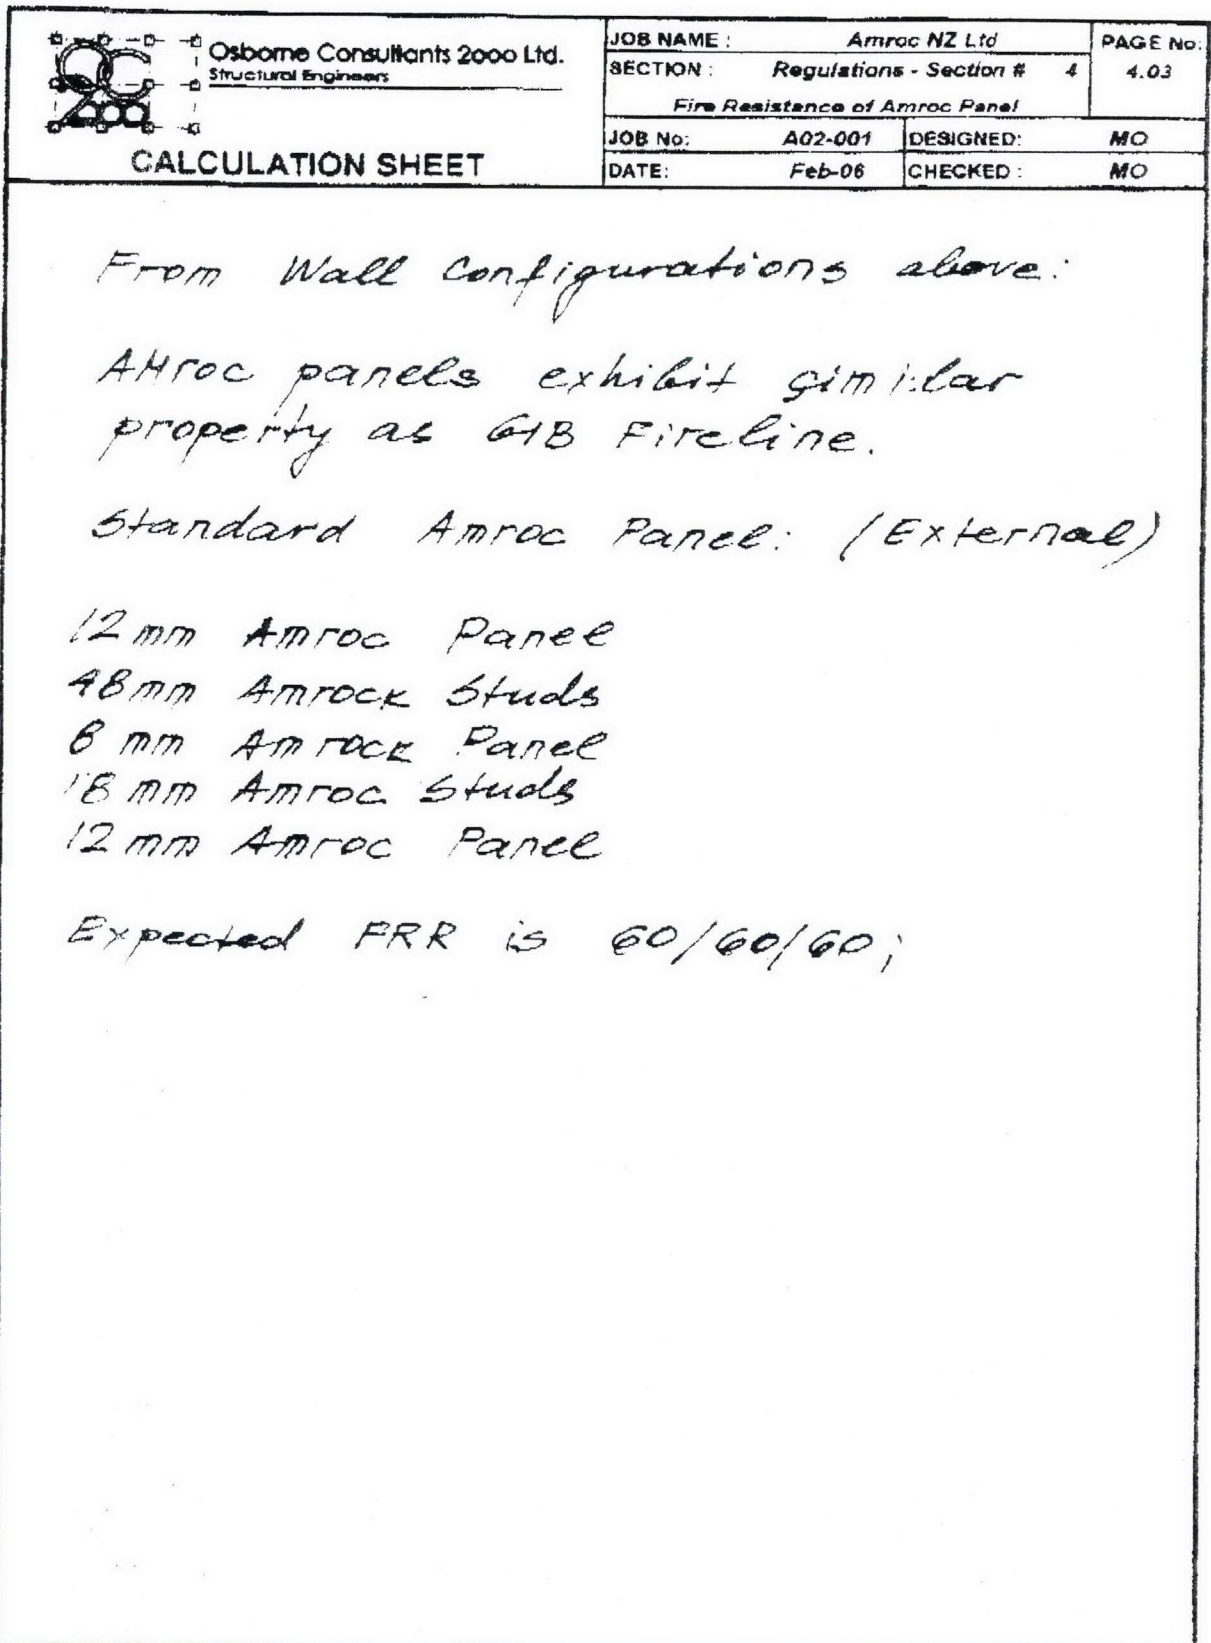 OC
2000
Osborne Consultants 2000 Ltd.
Structural Engineers
CALCULATION SHEET
JOB NAME : Amroc NZ Ltd
PAGE No:
SECTION : Regulations - Section # 4
4.03
Fire Resistance of Amroc Panel
JOB No: A02-001 DESIGNED: MO
DATE: Feb-06 CHECKED : MO
From Wall Configurations above:
AMroc panels exhibit similar
property as GIB Fireline.
Standard Amroc Panel: (External)
12 mm Amroc Panel
48mm Amrock Studs
8 mm Amrock Panel
18 mm Amroc Studs
12 mm Amroc Panel
Expected FRR is 60/60/60;